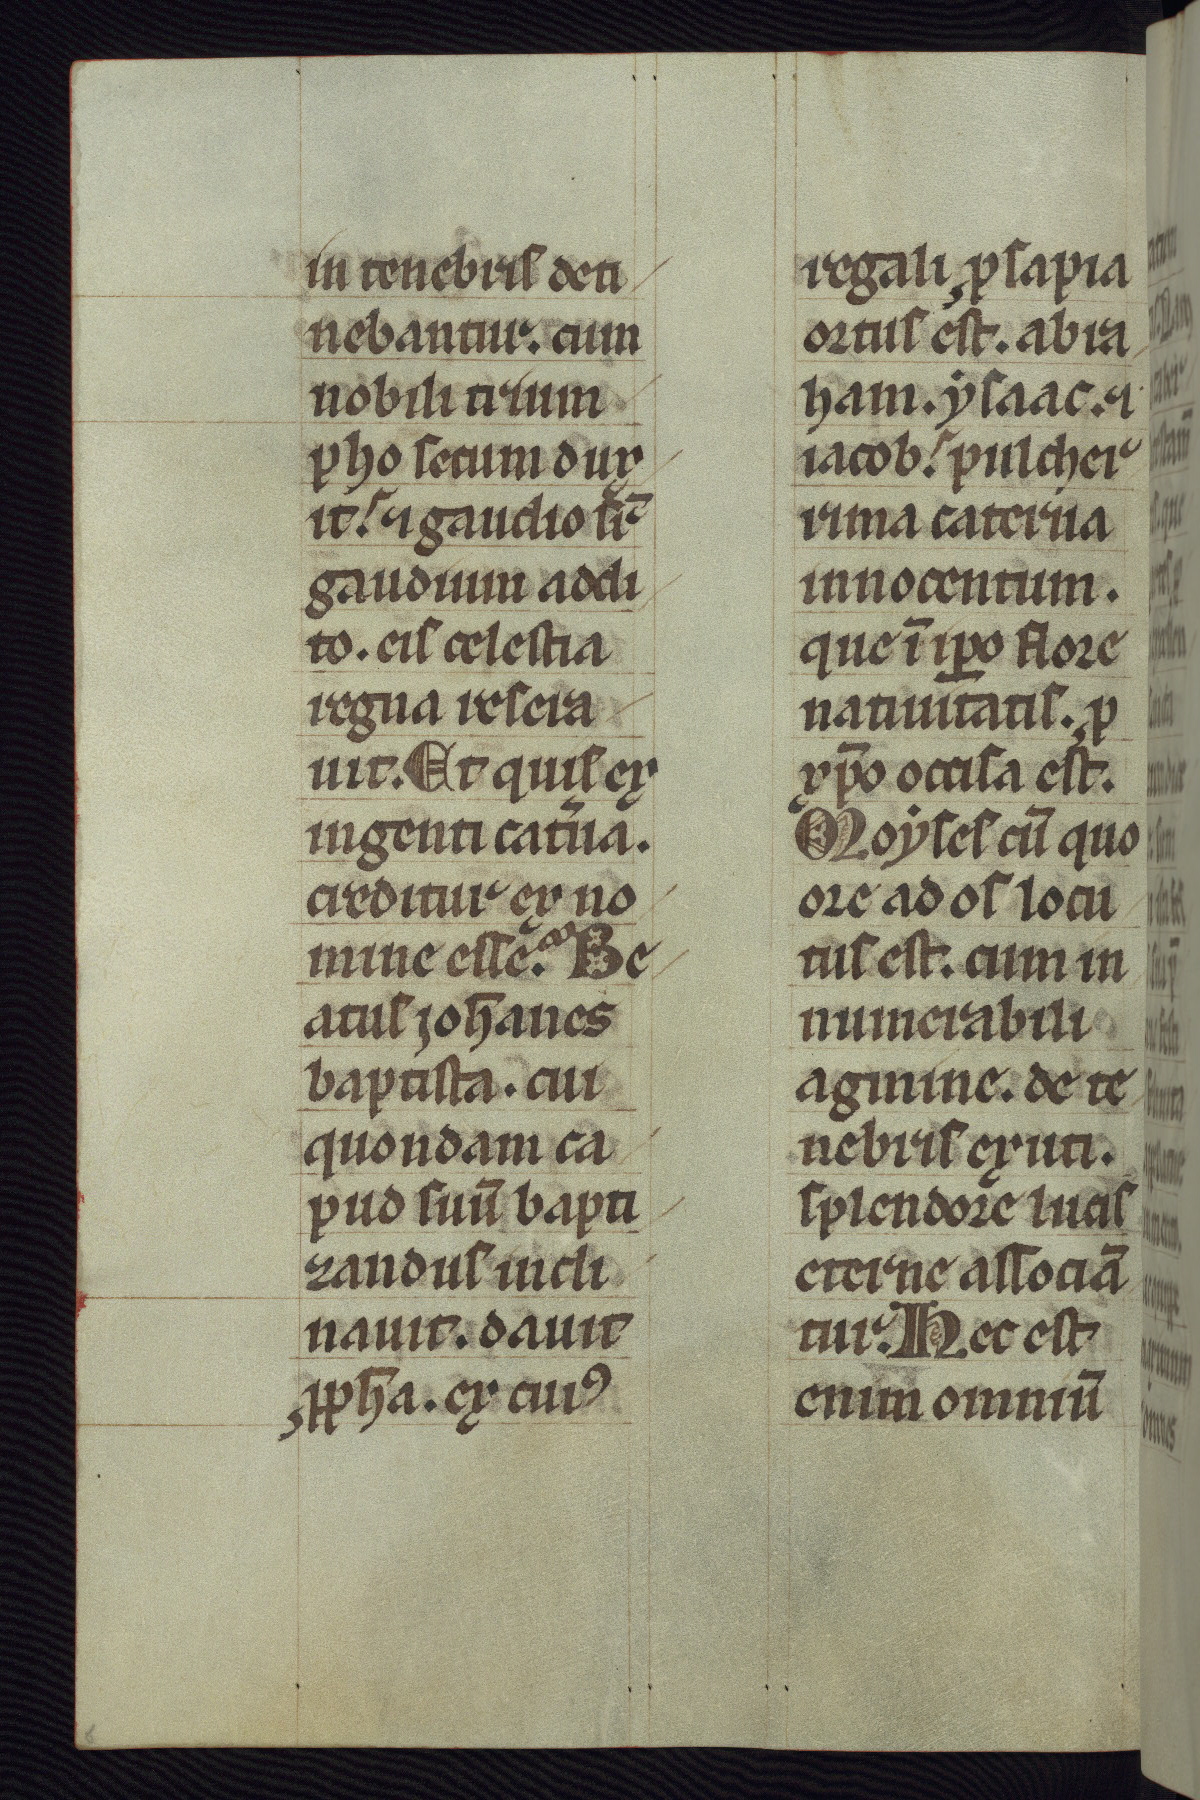 in tenebris deti
nebantur. cum
nobili trium
pho secum dux
it. ⁊ gaudio sic̄
gaudium addi
to. eis celestia
regna resera
uit. Et quis ex
ingenti cat̄ua.
creditur ex no
mine esse. Be
atus joh̄anes
baptista. cui
quondam ca
pud suū bapti
zandus incli
nauit. dauit
ꝓph̄a. ex cuiꝰ
regali ꝓsapia
ortus est. abra
ham. ẏsaac. ⁊
iacob. pulcher
rima caterua
innocentum.
que ī ip̄o flore
natiuitatis. ꝓ
xp̄o occisa est.
Moẏses cū quo
ore ad os locu
tus est. cum in
numerabili
agmine. de te
nebris exuti.
splendore lucis
eterne associā
tur. Hec est
enim omniū